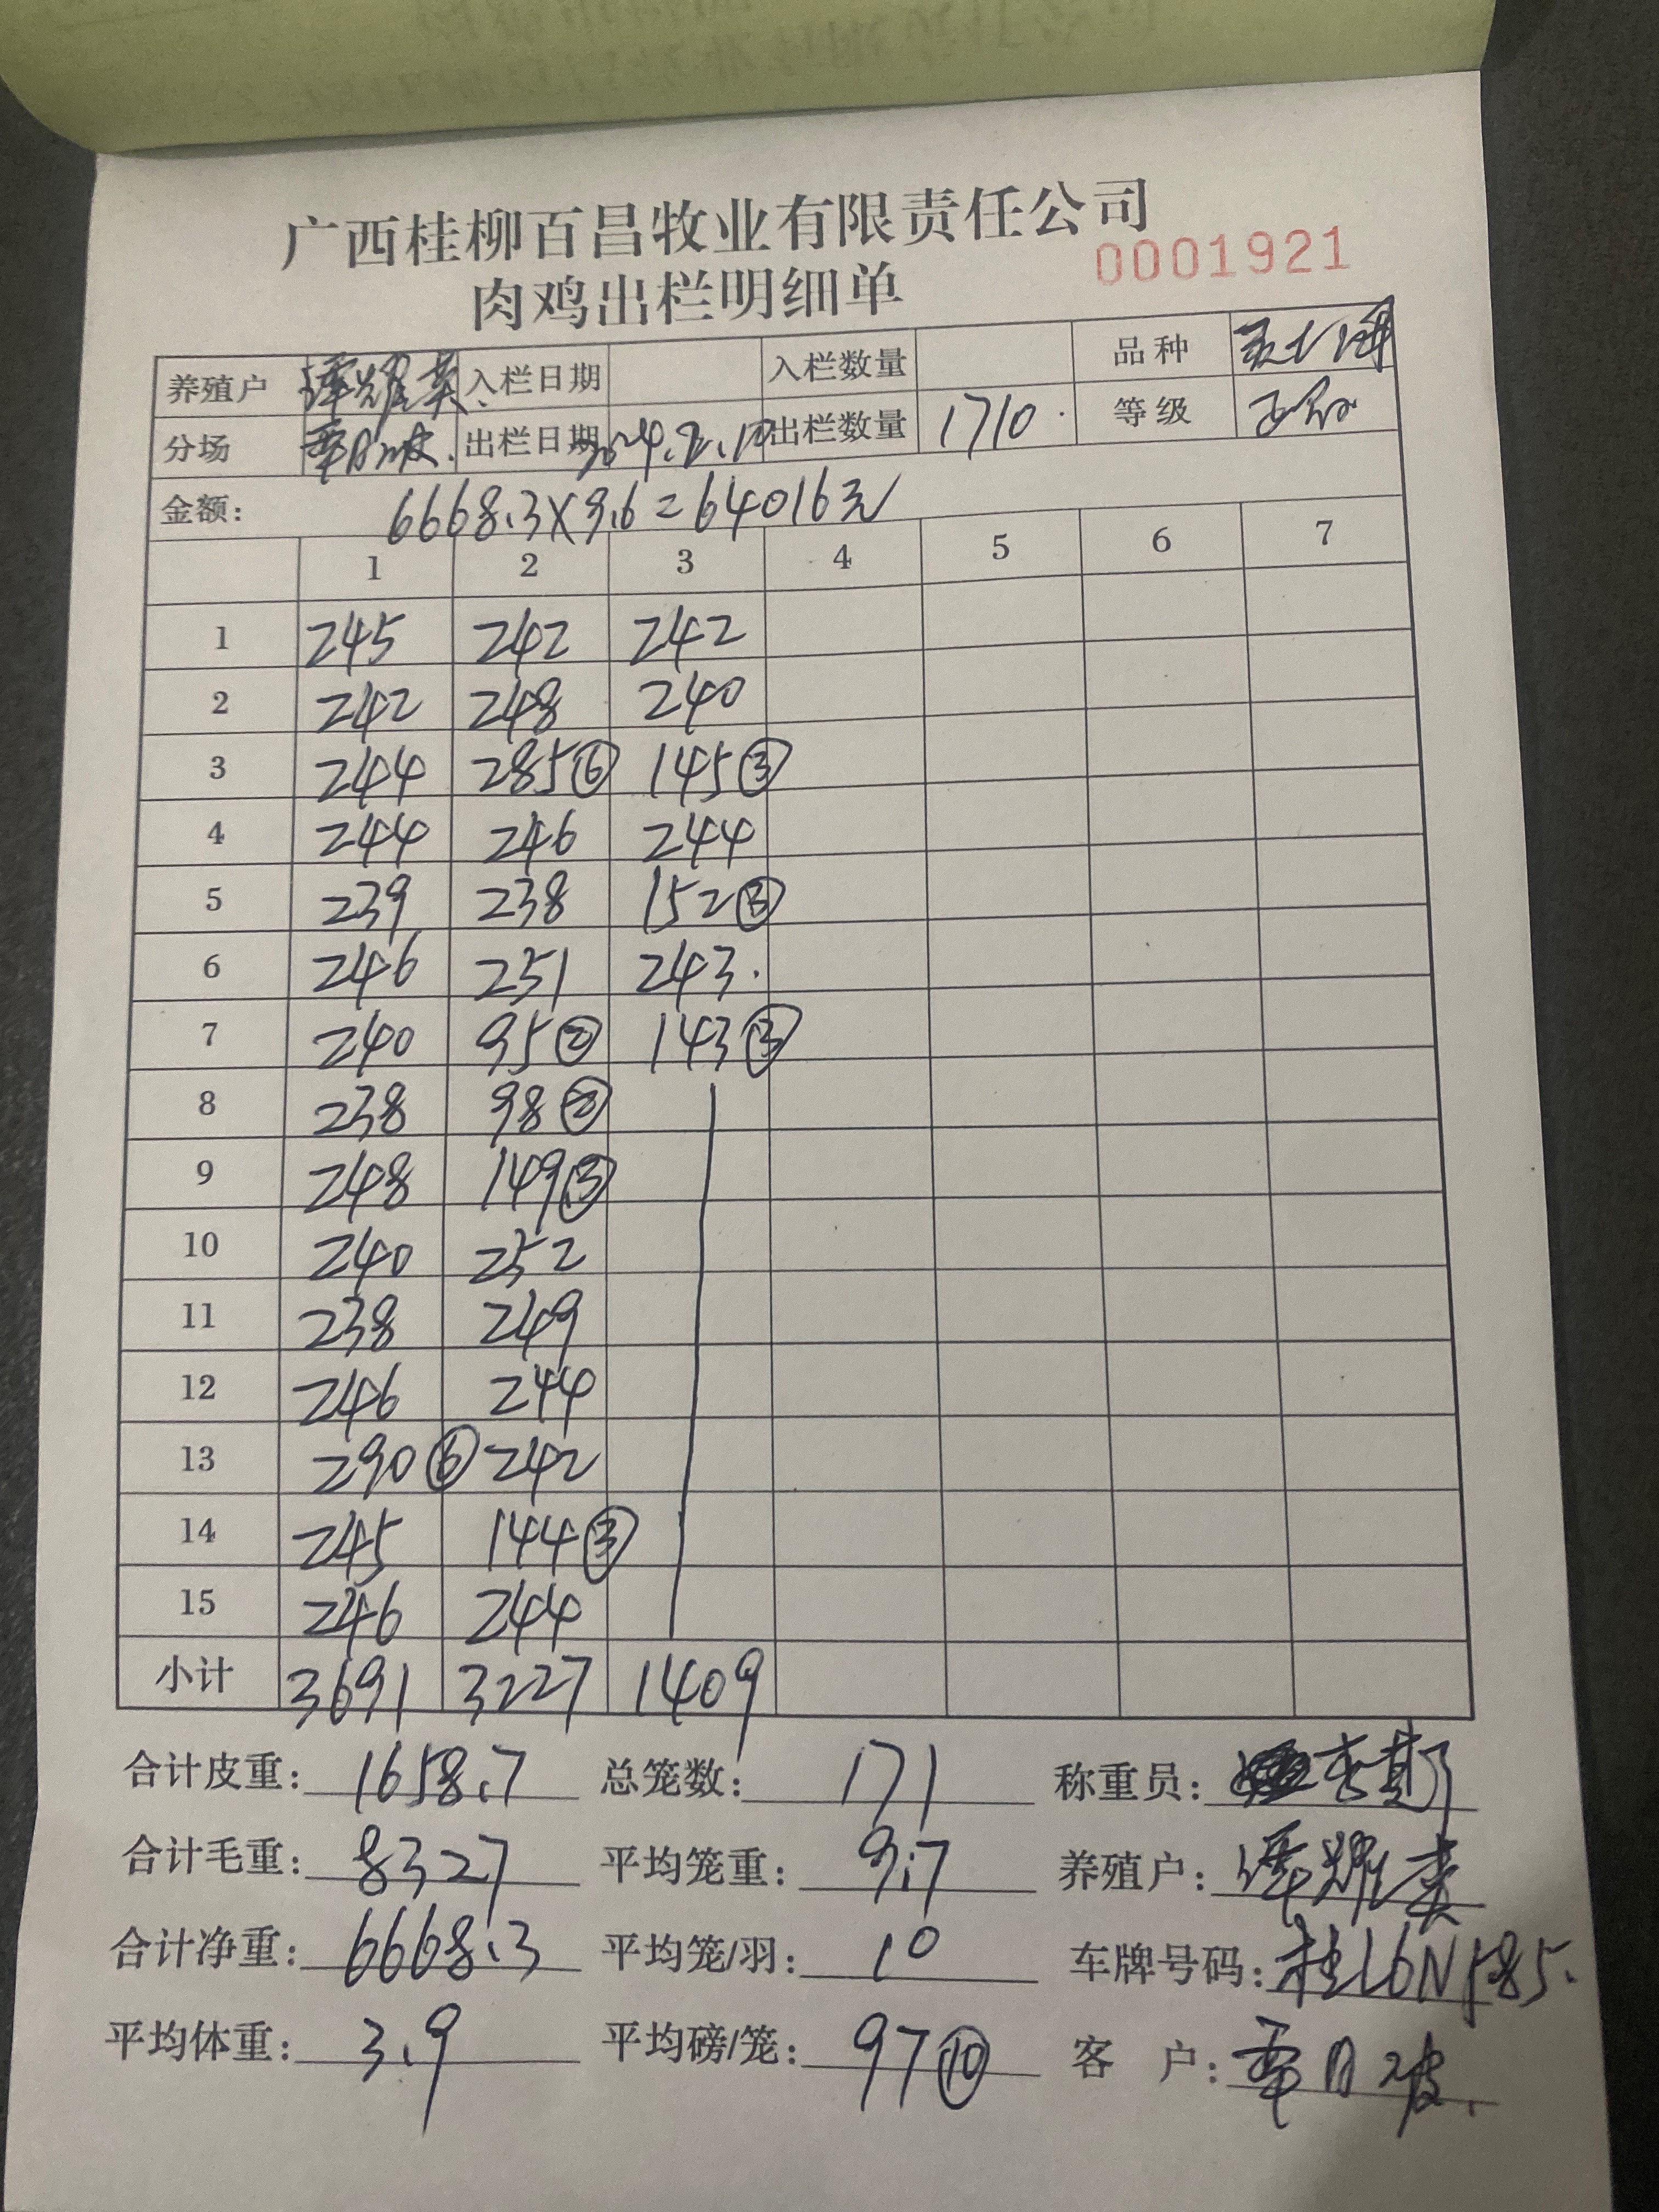 广西桂柳百昌牧业有限责任公司
0001921
肉鸡出栏明细单
养殖户 谭耀英 入栏日期 入栏数量 品种
分场 覃日波 出栏日期 2024.2.10 出栏数量 1710 等级
金额: 6668.3×9.6=64016元
1 2 3 4 5 6 7
1 245 242 242
2 242 248 240
3 244 285⑥ 145③
4 244 246 244
5 239 238 152③
6 246 251 243.
7 240 95② 143③
8 238 98②
9 248 149③
10 240 252
11 238 249
12 246 244
13 290⑥ 242
14 245 144③
15 246 244
小计 3691 3227 1409
合计皮重: 1658.7 总笼数: 171 称重员:
合计毛重: 8327 平均笼重: 9.7 养殖户: 谭耀英
合计净重: 6668.3 平均笼/羽: 10 车牌号码: 桂L6N585.
平均体重: 3.9 平均磅/笼: 97⑩ 客户: 覃日波.